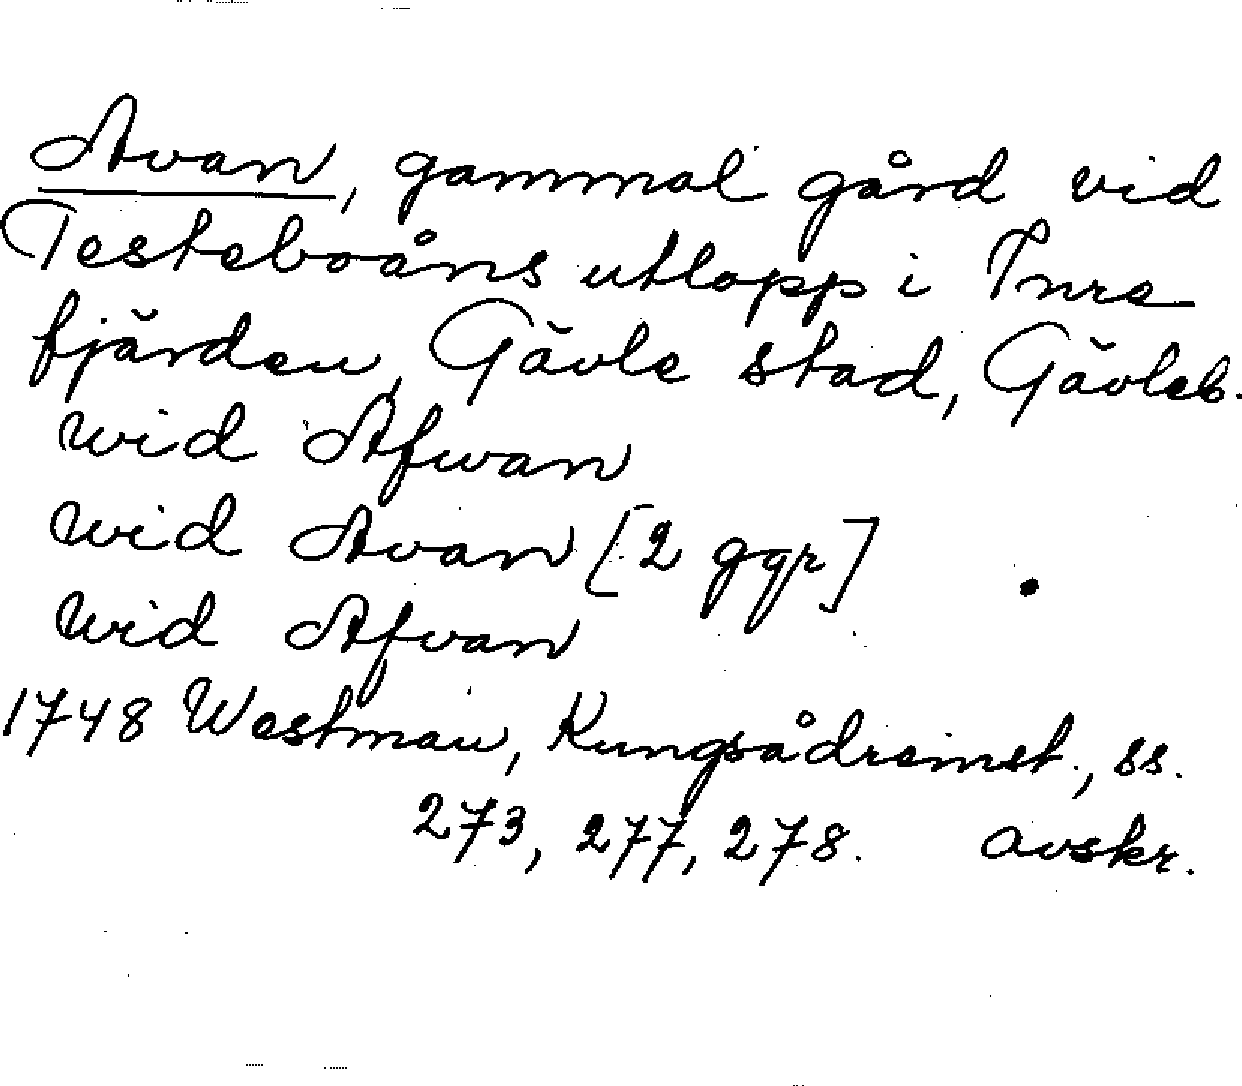 Avan, gammal gård vid
Testeboåns utlopp i Inre
fjärden, Gävle stad, Gävleb.
wid Afwan
wid Avan [2 ggr]
wid Afvan
1748 Westman, Kungsådremst., ss.
273, 277, 278. avskr.